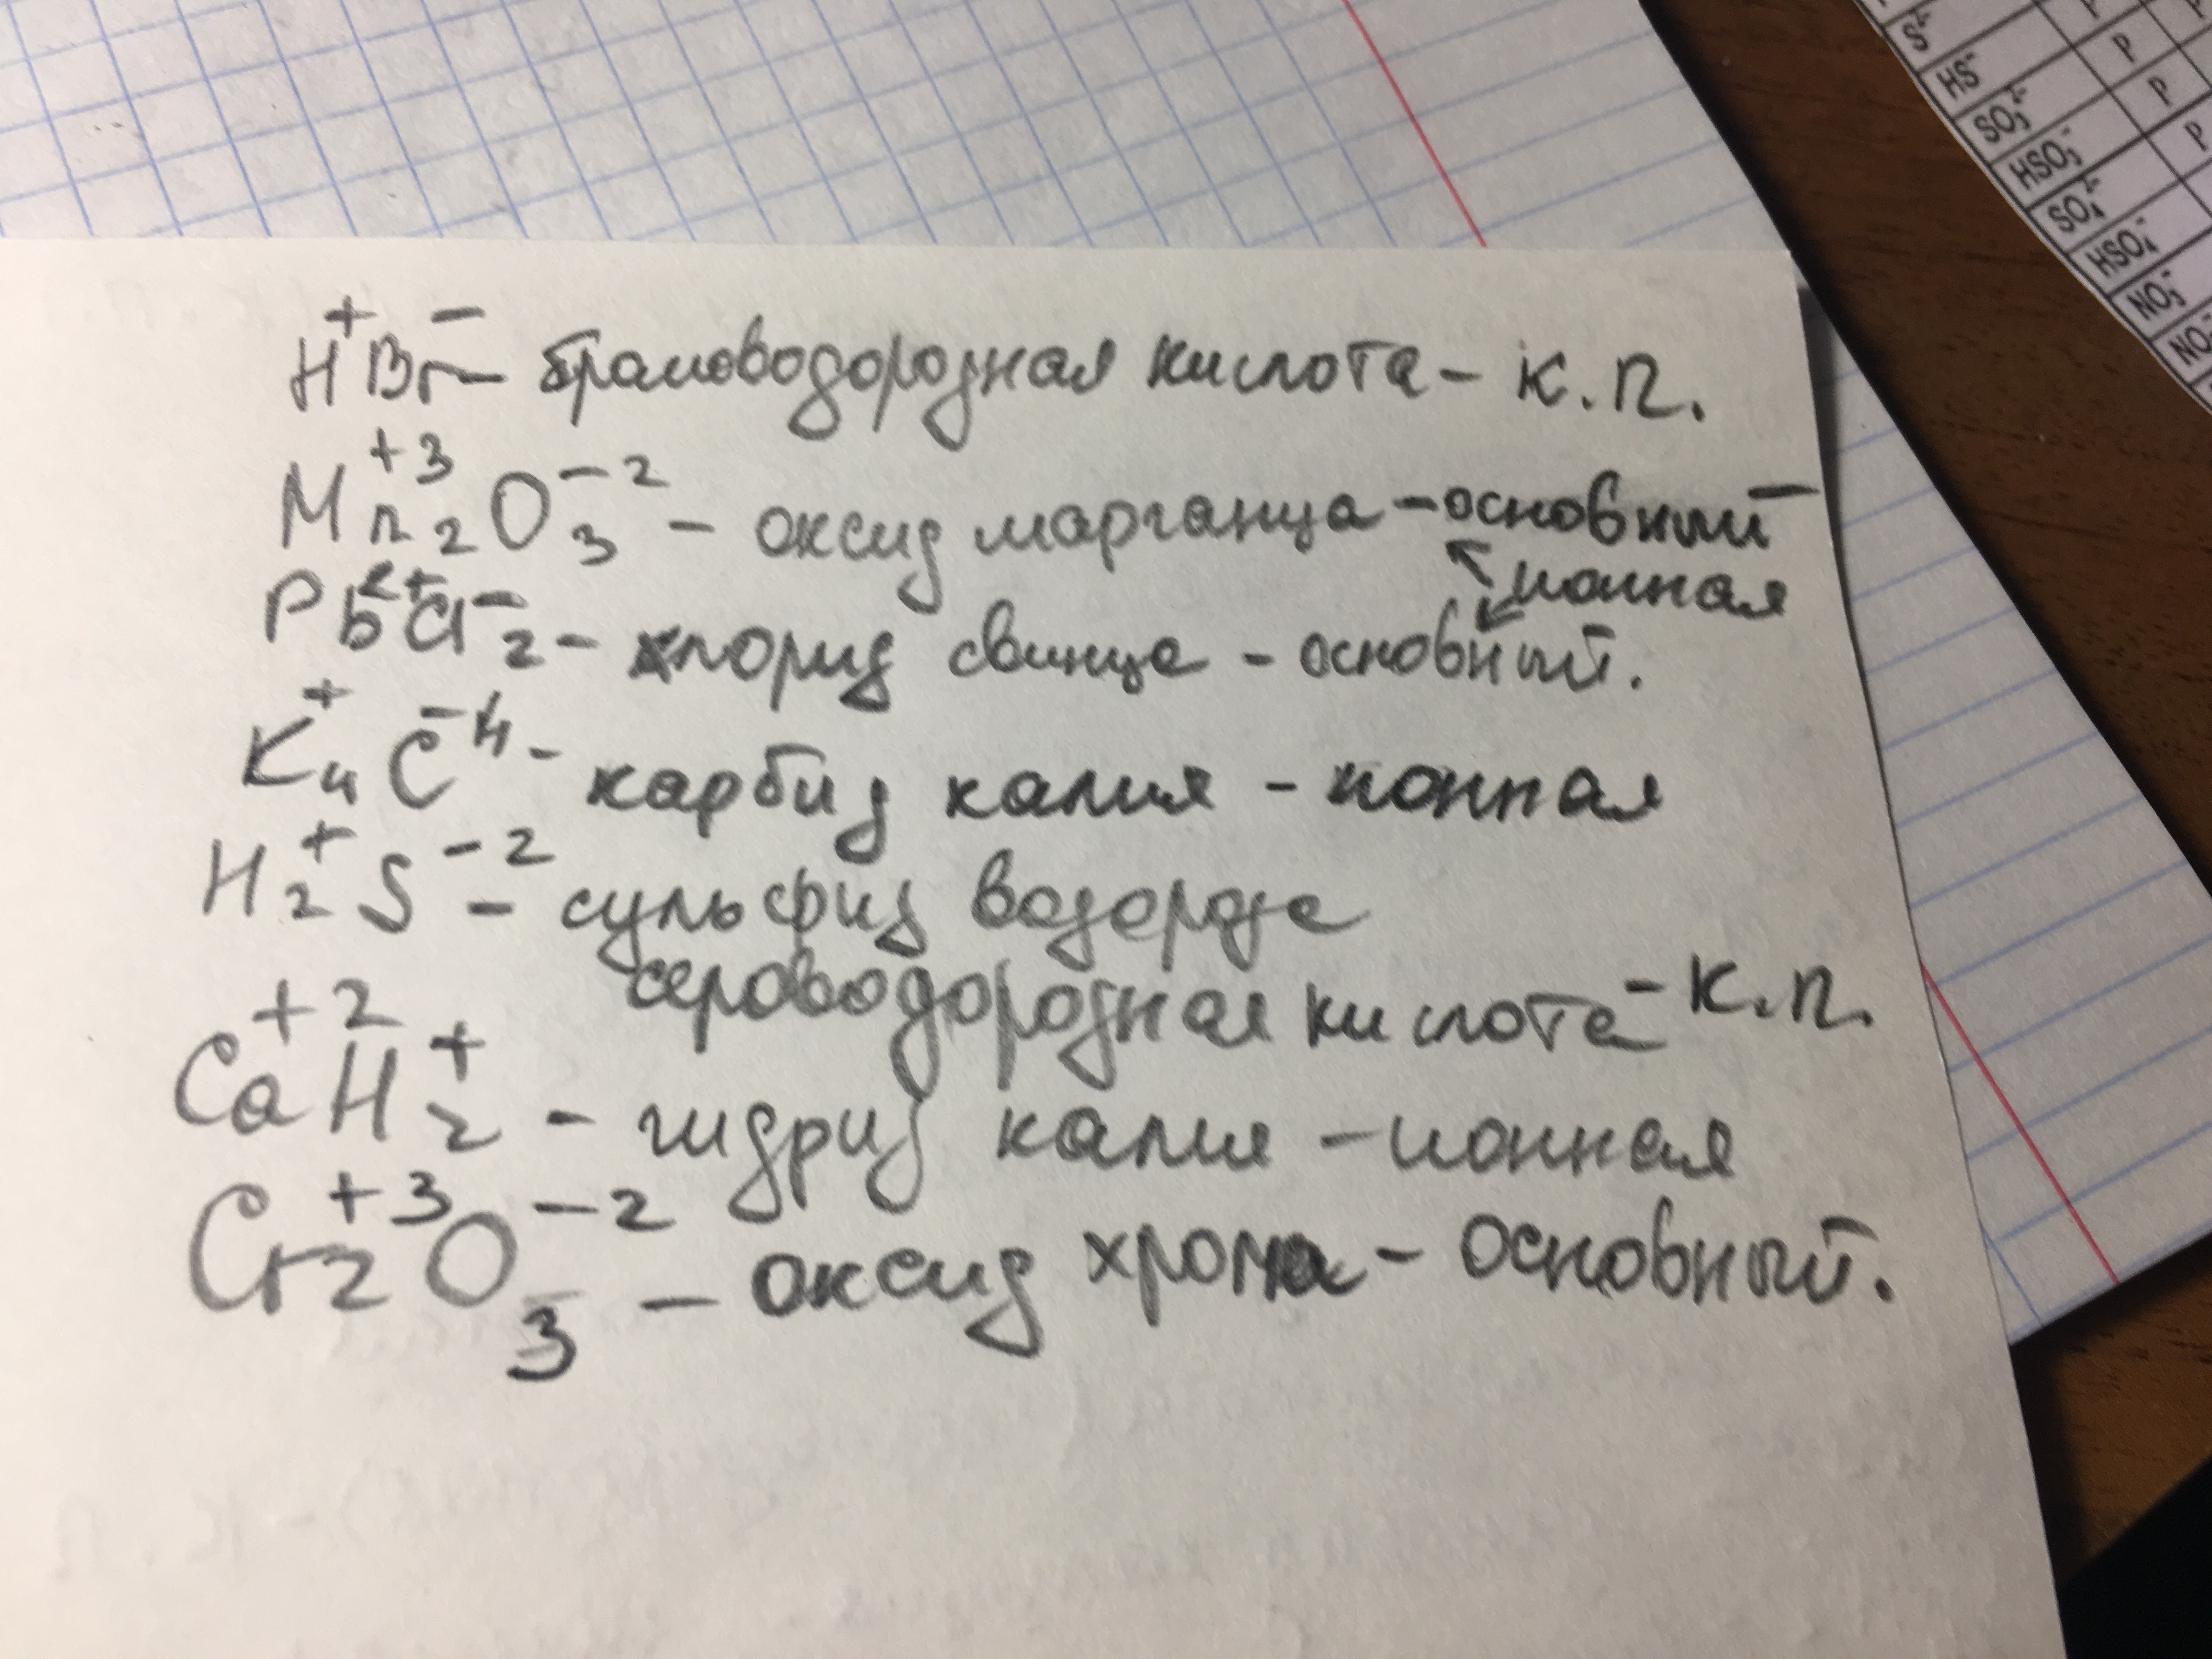 H⁺Br⁻ – бромоводородная кислота – к.п.
Mn₂⁺³O₃⁻² – оксид марганца – основный –
ионная
Pb²⁺Cl⁻₂ – хлорид свинца – основный.
K⁺₄C⁻⁴ – карбид калия – ионная
H₂⁺S⁻² – сульфид водорода
сероводородная кислота – к.п.
Ca⁺²H⁺₂ – гидрид калия – ионная
Cr₂⁺³O₃⁻² – оксид хрома – основный.
S²⁻
HS⁻ P
SO₃²⁻ P
HSO₃⁻ P
SO₄²⁻
HSO₄⁻
NO₃⁻